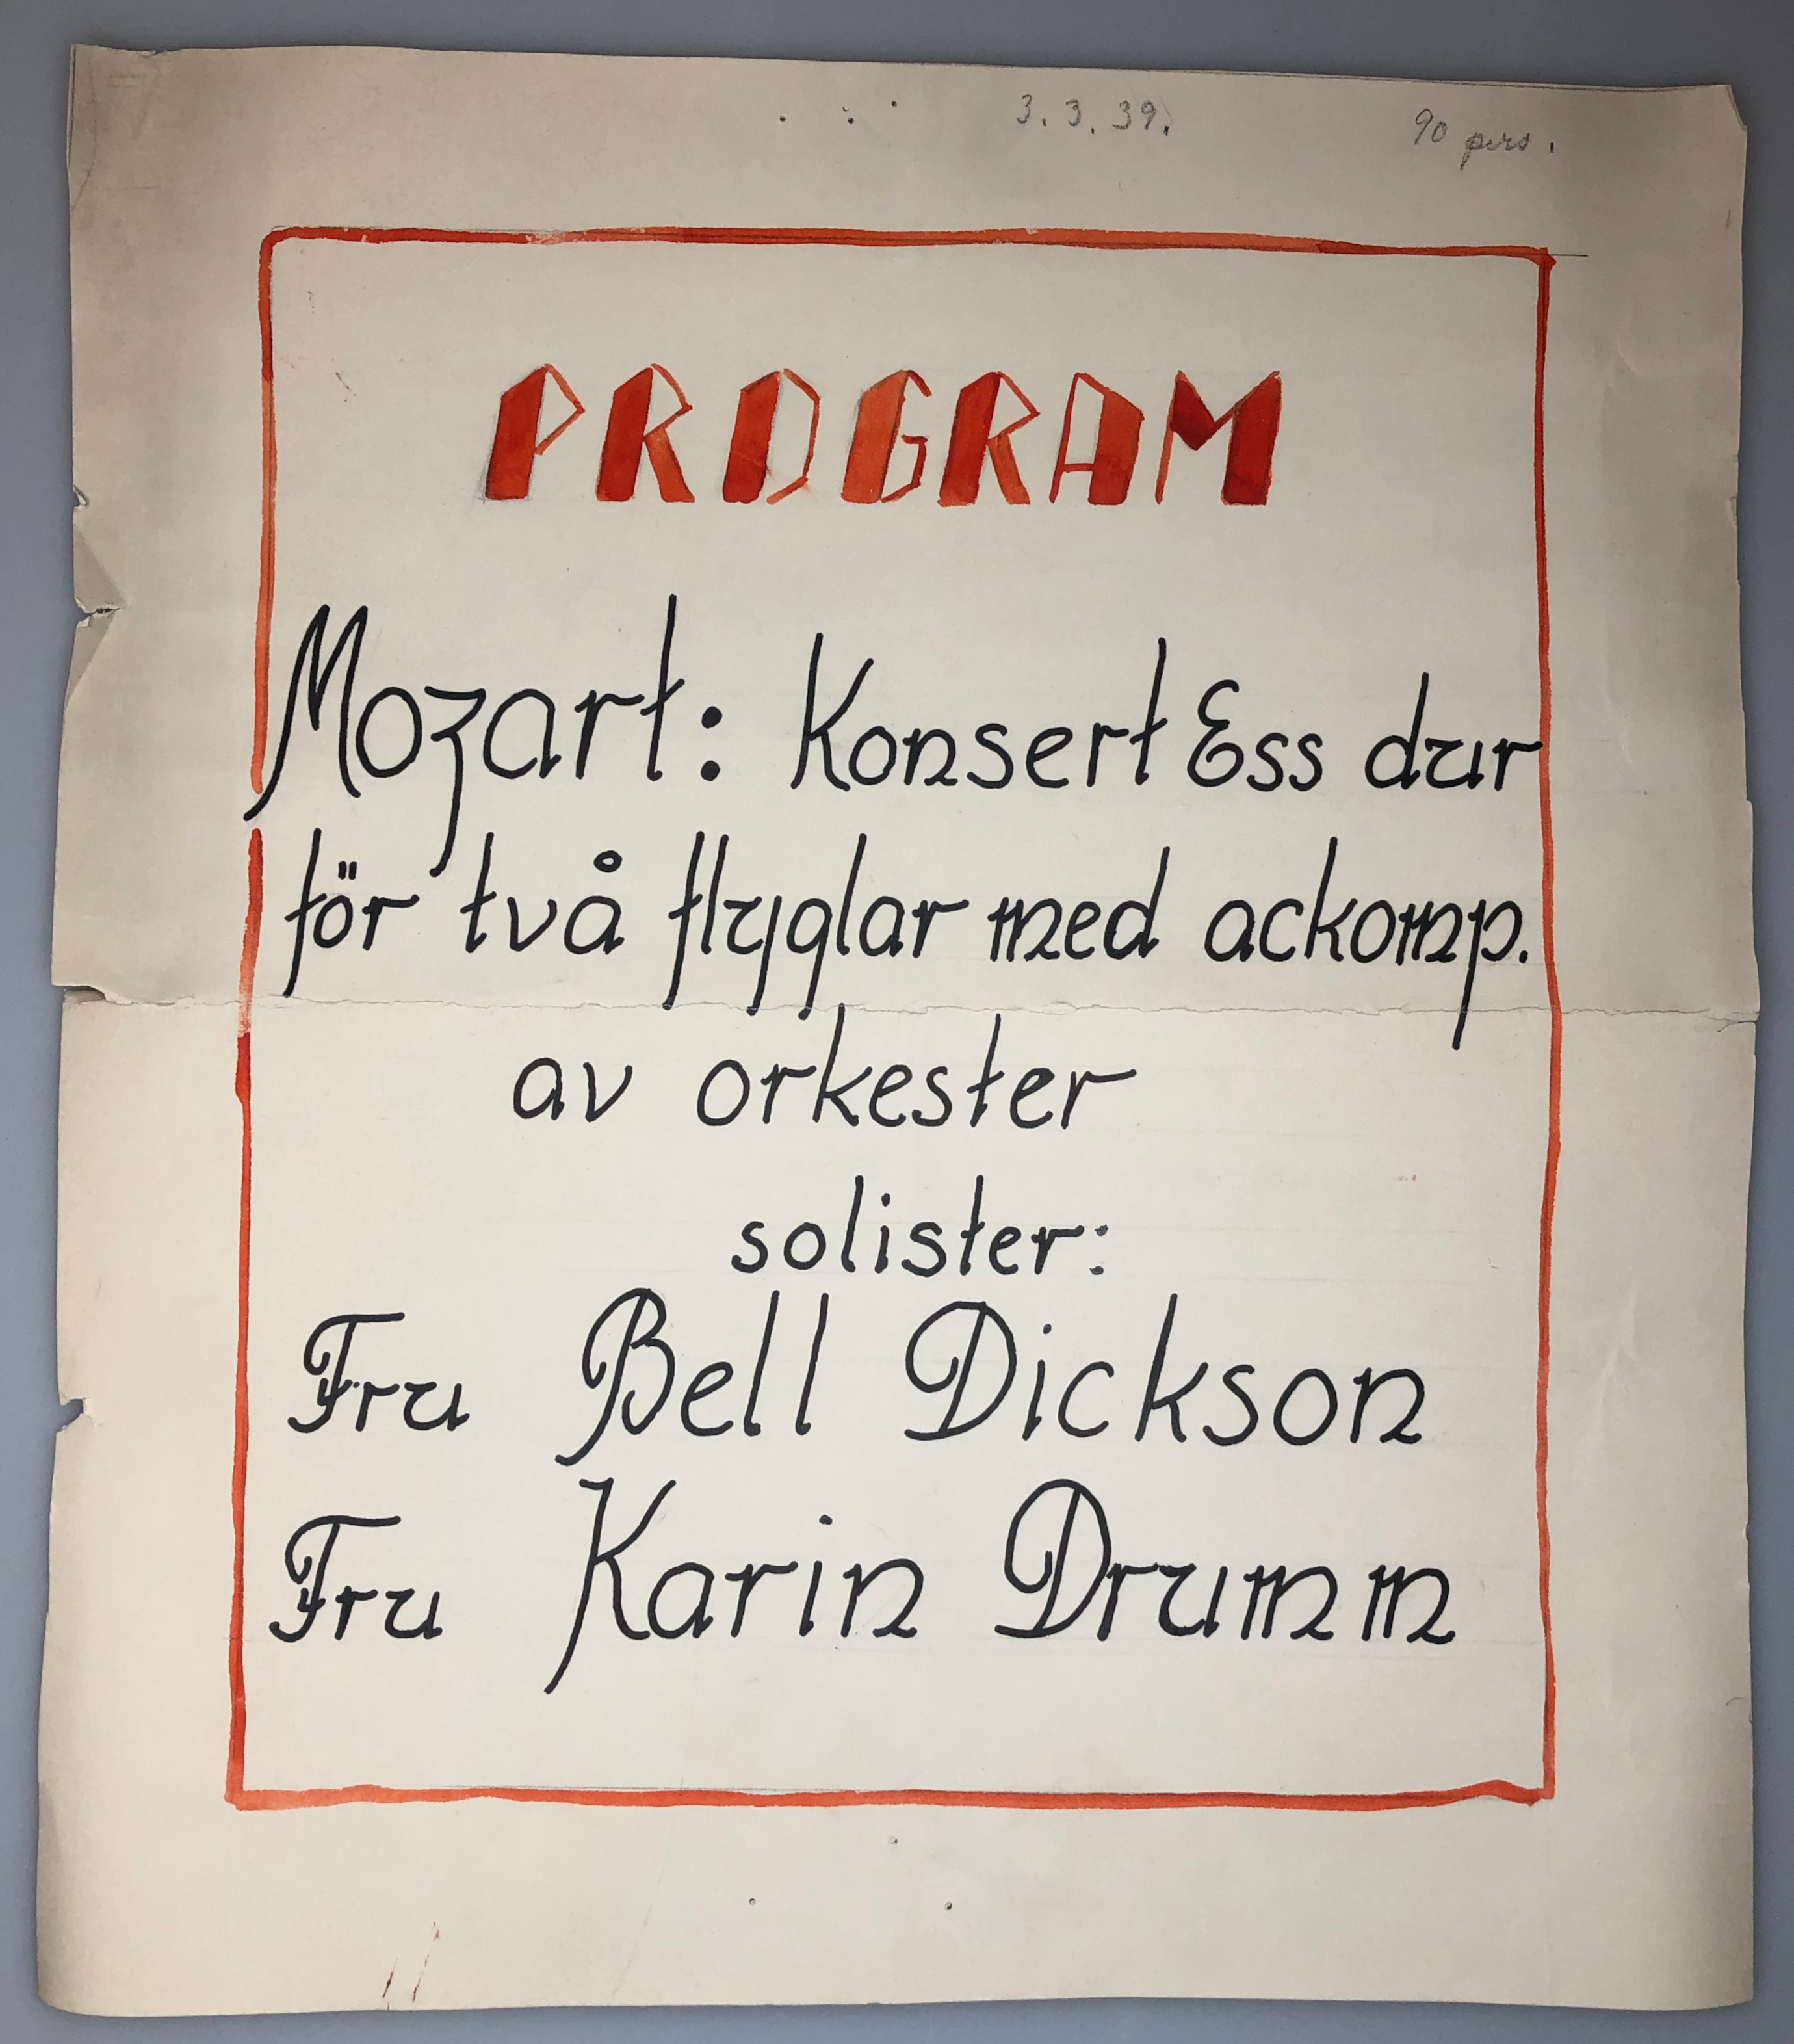 3.3.39. 90 pers.
PROGRAM
Mozart: Konsert Ess dur
för två flyglar med ackomp.
av orkester
solister:
Fru Bell Dickson
Fru Karin Drumm